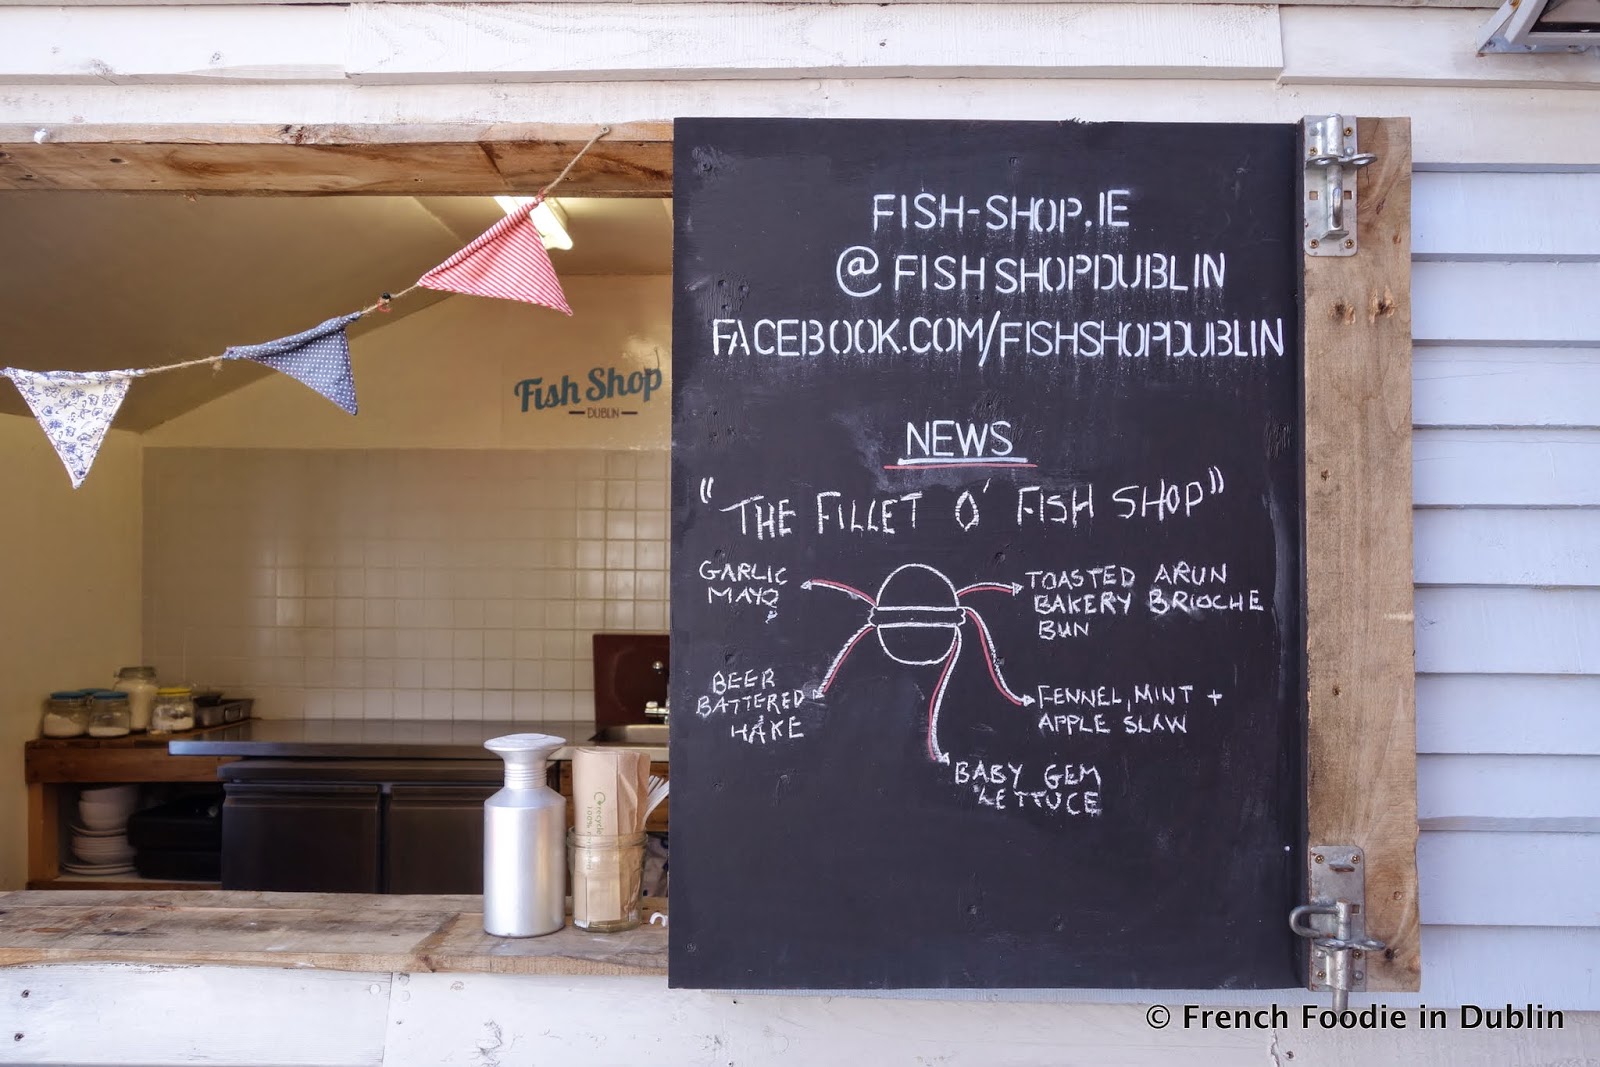 FISH-SHOP.IE
@FISHSHOPDUBLIN
FACEBOOK.COM/FISHSHOPDUBLIN
NEWS
"THE FILLET O' FISH SHOP"
GARLIC
MAYO
TOASTED ARUN
BAKERY BRIOCHE
BUN
BEER
BATTERED
HAKE
FENNEL, MINT +
APPLE SLAW
BABY GEM
LETTUCE
Fish Shop
DUBLIN
recycle
100%
© French Foodie in Dublin